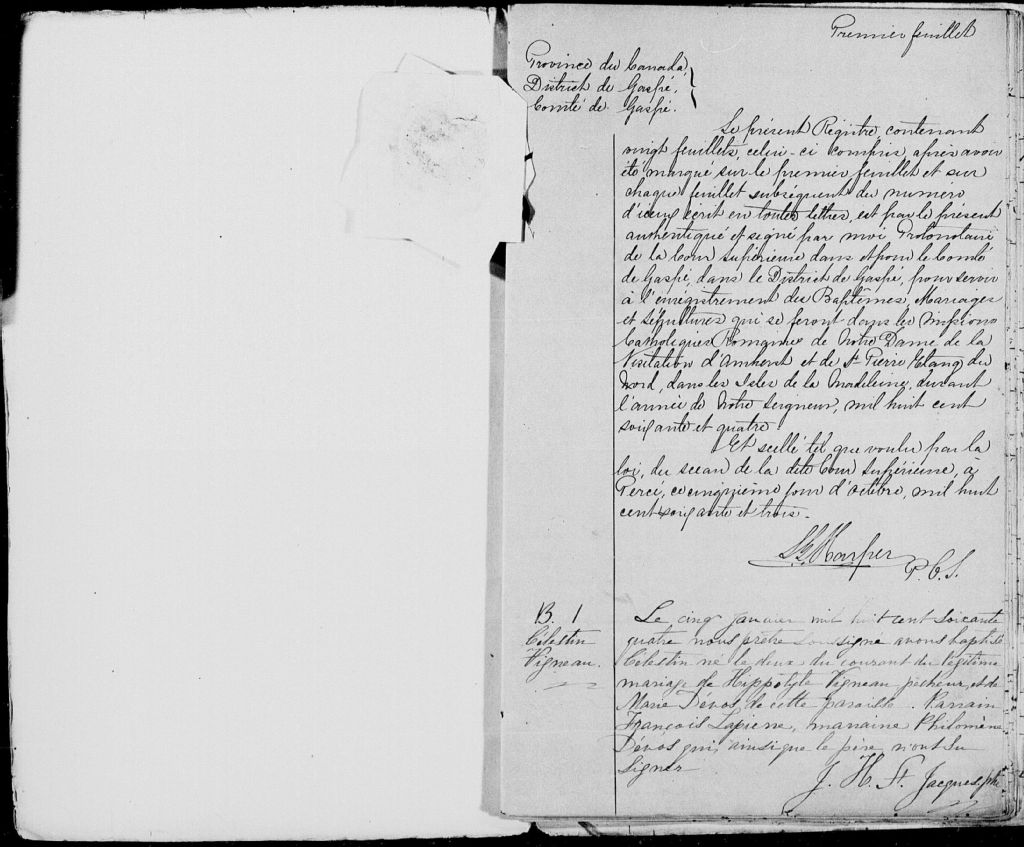 Premier feuillet
Province du Canada,
District de Gaspé,
Comté de Gaspé.
Le présent Registre, contenant
vingt feuillets, celui-ci compris, après avoir
été marqué sur le premier feuillet et sur
chaque feuillet subséquent du numero
d'iceux écrit en toutes lettres, est par le présent
authentiqué et signé par moi Protonotaire
de la Cour Supérieure dans et pour le Comté
de Gaspé, dans le District de Gaspé, pour servir
à l'enregistrement des Baptêmes, Mariages
et Sépultures qui se feront dans les missions
Catholiques Romaines de Notre Dame de la
Visitation d'Amherst et de St Pierre Etang du
Nord, dans les Isles de la Madeleine, durant
l'année de Notre Seigneur, mil huit cent
soixante et quatre.
Et scellé tel que voulu par la
loi, du sceau de la dite Cour Supérieure, à
Percé, ce cinquième jour d'Octobre, mil huit
cent soixante et trois.
Harper
P. C. S.
B. 1
Célestin
Vigneau.
Le cinq janvier mil huit cent soixante
quatre nous prêtre soussigné avons baptisé
Célestin né le deux du courant du légitime
mariage de Hippolyte Vigneau pêcheur, et de
Marie Dévos de cette paroisse. Parrain
François Lapierre, marraine Philomène
Dévos qui, ainsi que le père n'ont su
signer
J. H. St Jacques